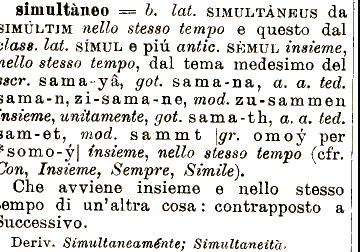 simultàneo = b. lat. SIMULTÀNEUS da
SIMÚLTIM nello stesso tempo e questo dal
class. lat. SÍMUL e piú antic. SÈMUL insieme,
nello stesso tempo, dal tema medesimo del
sscr. sama-yâ, got. sama-na, a. a. ted.
sama-n, zi-sama-ne, mod. zu-sammen
insieme, unitamente, got. sama-th, a. a. ted.
sam-et, mod. sammt |gr. omoý per
*somo-ý| insieme, nello stesso tempo (cfr.
Con, Insieme, Sempre, Simile).
Che avviene insieme e nello stesso
tempo di un'altra cosa: contrapposto a
Successivo.
Deriv. Simultaneaménte; Simultaneità.